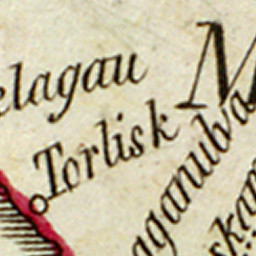 elagau
Torlisk
M
aganulva
skar